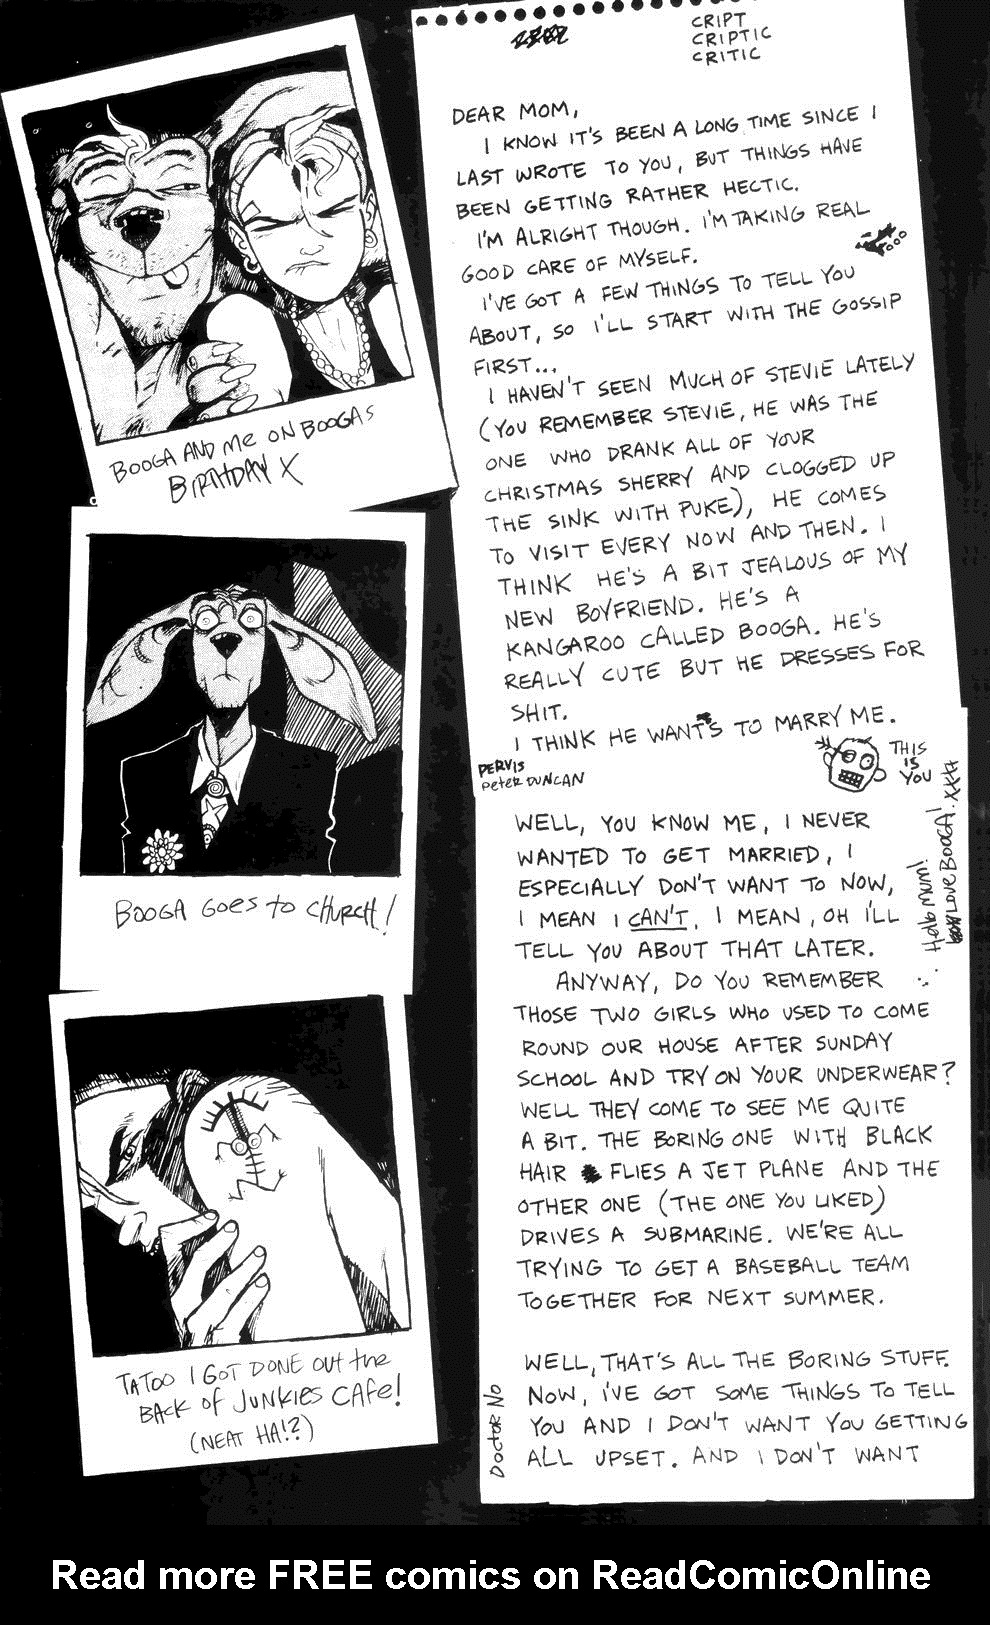 CRIPT
CRIPTIC
CRITIC
DEAR MOM,
I KNOW IT'S BEEN A LONG TIME SINCE I
LAST WROTE TO YOU, BUT THINGS HAVE
BEEN GETTING RATHER HECTIC.
I'M ALRIGHT THOUGH. I'M TAKING REAL
GOOD CARE OF MYSELF.
I'VE GOT A FEW THINGS TO TELL YOU
ABOUT, SO I'LL START WITH THE GOSSIP
FIRST...
I HAVEN'T SEEN MUCH OF STEVIE LATELY
(YOU REMEMBER STEVIE, HE WAS THE
ONE WHO DRANK ALL OF YOUR
CHRISTMAS SHERRY AND CLOGGED UP
THE SINK WITH PUKE), HE COMES
TO VISIT EVERY NOW AND THEN. I
THINK HE'S A BIT JEALOUS OF MY
NEW BOYFRIEND. HE'S A
KANGAROO CALLED BOOGA. HE'S
REALLY CUTE BUT HE DRESSES FOR
SHIT.
I THINK HE WANTS TO MARRY ME.
PERVIS
PETER DUNCAN
THIS
IS
YOU
WELL, YOU KNOW ME, I NEVER
WANTED TO GET MARRIED, I
ESPECIALLY DON'T WANT TO NOW,
I MEAN I CAN'T, I MEAN, OH I'LL
TELL YOU ABOUT THAT LATER.
ANYWAY, DO YOU REMEMBER
THOSE TWO GIRLS WHO USED TO COME
ROUND OUR HOUSE AFTER SUNDAY
SCHOOL AND TRY ON YOUR UNDERWEAR?
WELL THEY COME TO SEE ME QUITE
A BIT. THE BORING ONE WITH BLACK
HAIR FLIES A JET PLANE AND THE
OTHER ONE (THE ONE YOU LIKED)
DRIVES A SUBMARINE. WE'RE ALL
TRYING TO GET A BASEBALL TEAM
TOGETHER FOR NEXT SUMMER.
WELL, THAT'S ALL THE BORING STUFF.
NOW, I'VE GOT SOME THINGS TO TELL
YOU AND I DON'T WANT YOU GETTING
ALL UPSET. AND I DON'T WANT
Hello mum!
LOVE BOOGA! XXX
DOCTOR NO
BOOGA AND ME ON BOOGAS
BIRTHDAY X
BOOGA GOES TO CHURCH!
TATOO I GOT DONE OUT the
BACK OF JUNKIES CAFE!
(NEAT HA!?)
Read more FREE comics on ReadComicOnline